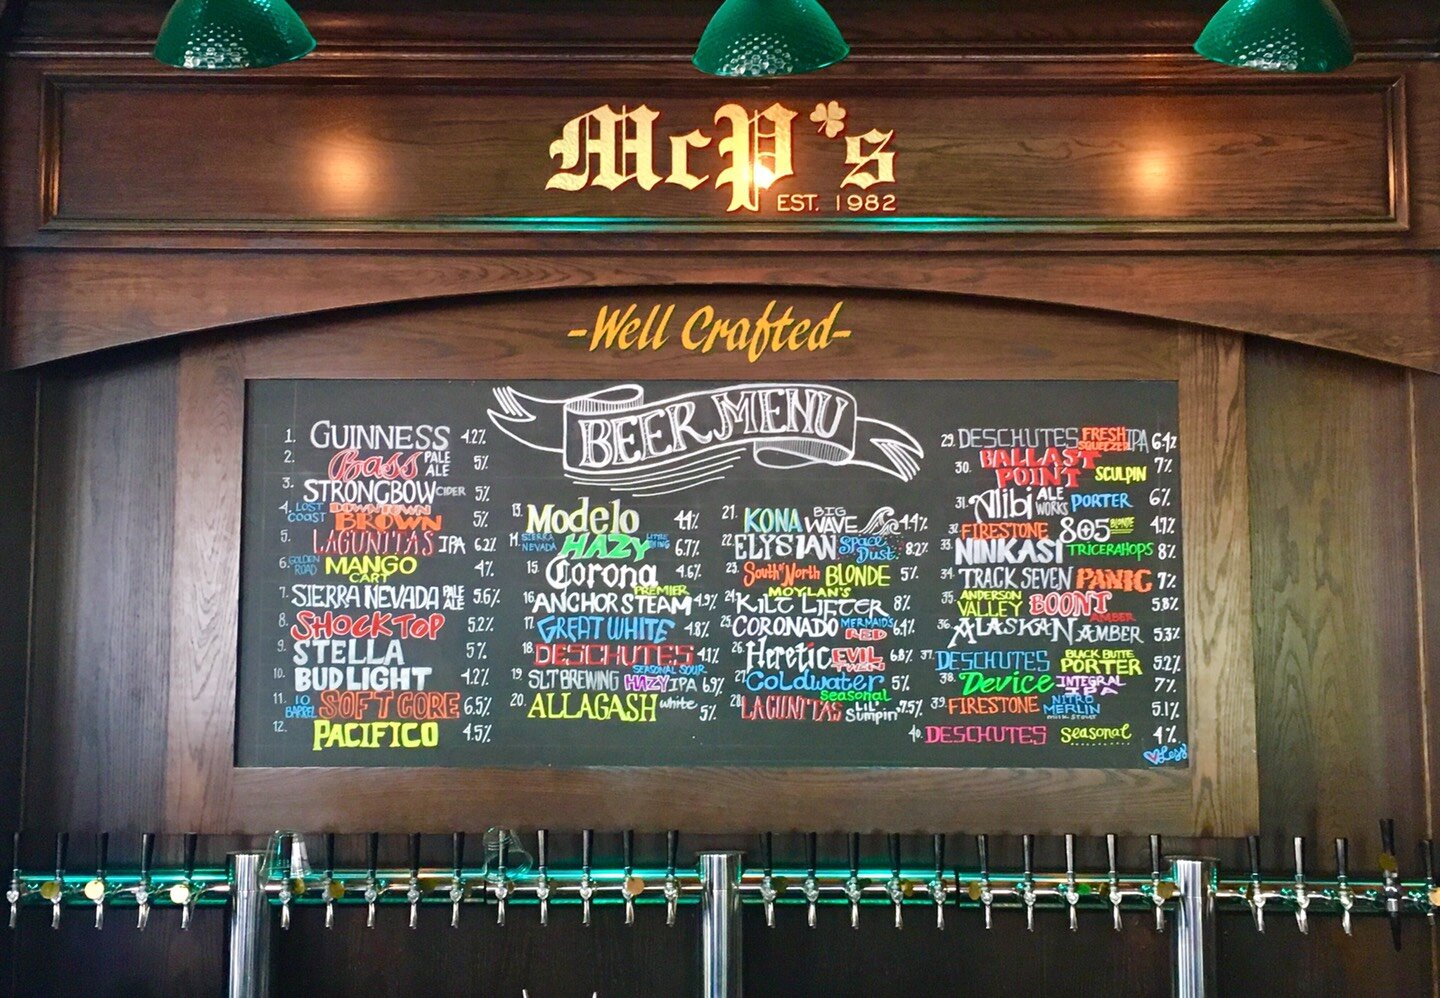 McP's
EST. 1982
-Well Crafted-
BEER MENU
1. GUINNESS 4.2%
2. Bass PALE ALE 5%
3. STRONGBOW CIDER 5%
4. LOST COAST DOWNTOWN BROWN 5%
5. LAGUNITAS IPA 6.2%
6. GOLDEN ROAD MANGO CART 4%
7. SIERRA NEVADA PALE ALE 5.6%
8. SHOCK TOP 5.2%
9. STELLA 5%
10. BUD LIGHT 4.2%
11. 10 BARREL SOFT CORE 6.5%
12. PACIFICO 4.5%
13. Modelo 4.4%
14. SIERRA NEVADA HAZY LITTLE THING 6.7%
15. Corona PREMIER 4.6%
16. ANCHOR STEAM 4.9%
17. GREAT WHITE 4.8%
18. DESCHUTES SEASONAL SOUR 4.1%
19. SLT BREWING HAZY IPA 6.9%
20. ALLAGASH white 5%
21. KONA BIG WAVE 4.4%
22. ELYSIAN Space Dust 8.2%
23. South of North BLONDE 5%
24. MOYLAN'S KILT LIFTER 8%
25. CORONADO MERMAIDS RED 6.4%
26. Heretic EVIL TWIN 6.8%
27. Coldwater Seasonal 5%
28. LAGUNITAS LIL' Sumpin' 7.5%
29. DESCHUTES FRESH SQUEEZED IPA 6.4%
30. BALLAST POINT SCULPIN 7%
31. Alibi ALE WORKS PORTER 6%
32. FIRESTONE 805 BLONDE 4.7%
33. NINKASI TRICERAHOPS 8%
34. TRACK SEVEN PANIC 7%
35. ANDERSON VALLEY BOONT AMBER 5.8%
36. ALASKAN AMBER 5.3%
37. DESCHUTES BLACK BUTTE PORTER 5.2%
38. Device INTEGRAL IPA 7%
39. FIRESTONE NITRO MERLIN MILK STOUT 5.1%
40. DESCHUTES Seasonal 4%